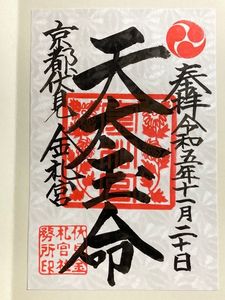 奉拝 令和五年十一月二十日
天太玉命
京都伏見 金札宮
伏見金
札宮社
務所印